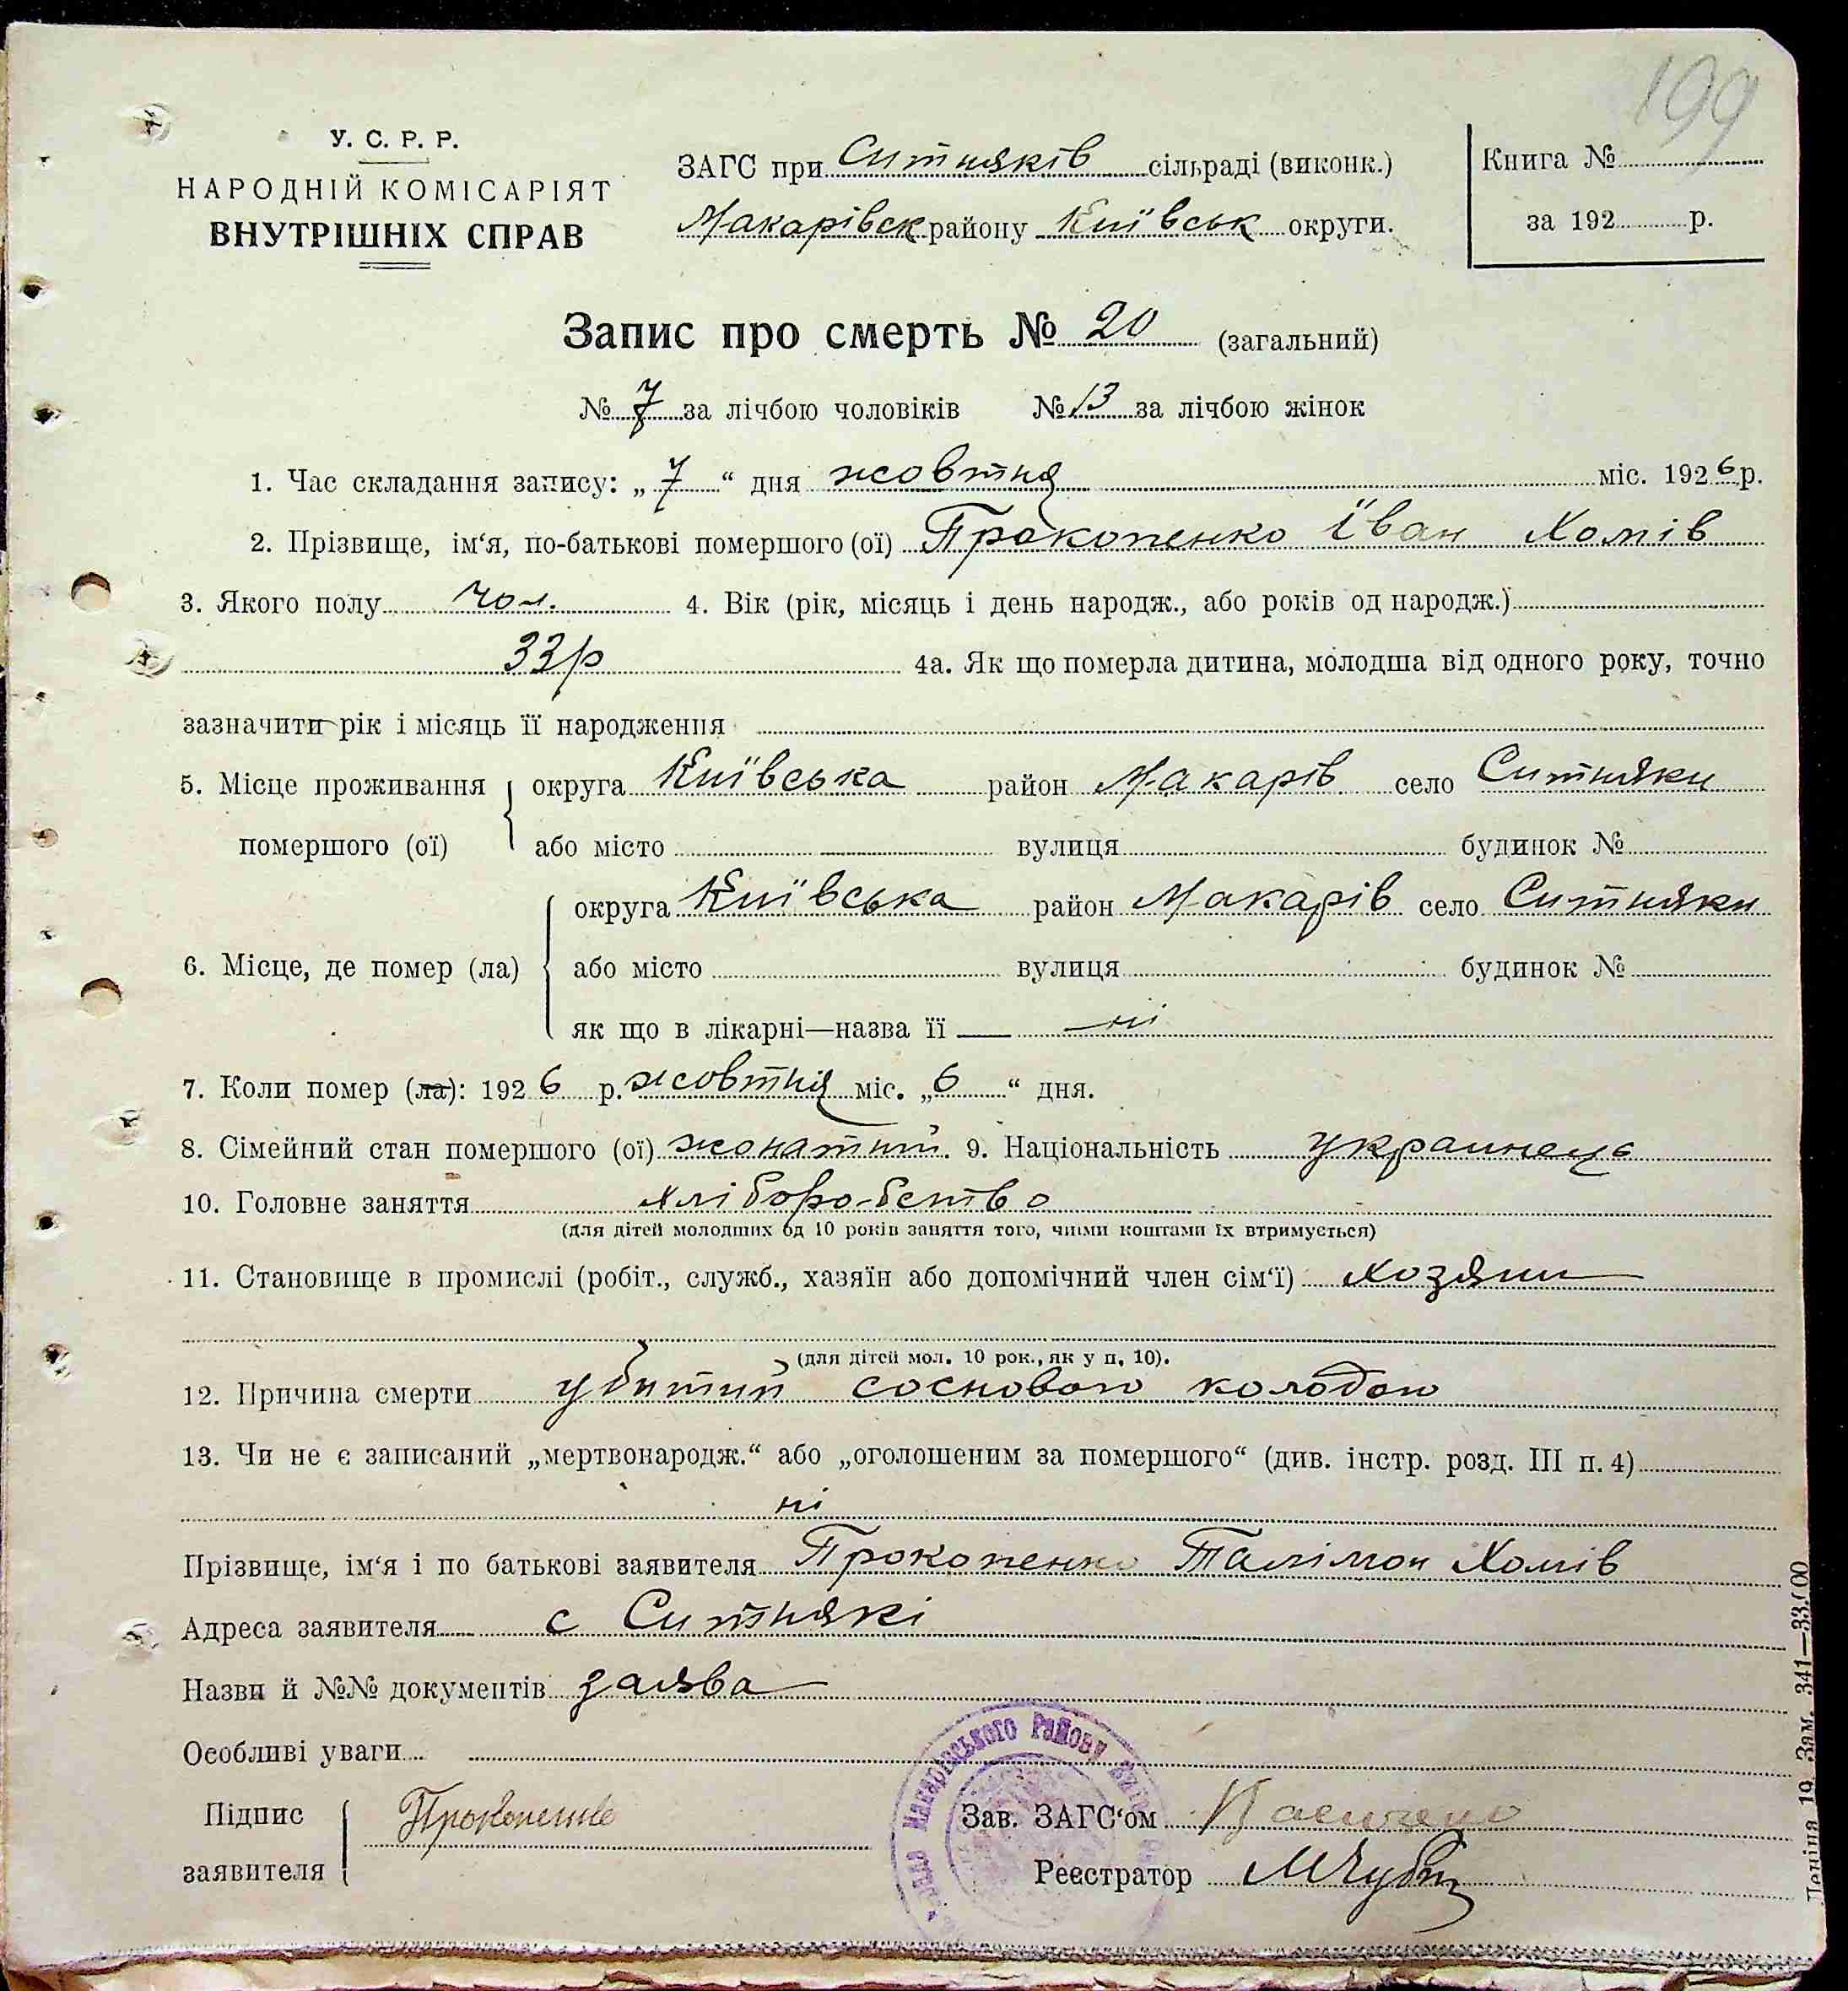 199
У. С. Р. Р.
НАРОДНІЙ КОМІСАРІЯТ
ВНУТРІШНІХ СПРАВ
ЗАГС при Ситняків сільраді (виконк.)
Макарівськ району Київськ округи.
Книга №
за 192 р.
Запис про смерть № 20 (загальний)
№ 7 за лічбою чоловіків № 13 за лічбою жінок
1. Час складання запису: „ 7 “ дня жовтня міс. 1926 р.
2. Прізвище, ім‘я, по-батькові помершого (ої) Прокопенко Їван Хомів
3. Якого полу чол. 4. Вік (рік, місяць і день народж., або років од народж.)
33 р 4а. Як що померла дитина, молодша від одного року, точно
зазначити рік і місяць її народження
5. Місце проживання помершого (ої) округа Київська район Макарів село Ситняки
або місто вулиця будинок №
6. Місце, де помер (ла) округа Київська район Макарів село Ситняки
або місто вулиця будинок №
як що в лікарні—назва її — ні
7. Коли помер (ла): 1926 р. жовтня міс. „ 6 “ дня.
8. Сімейний стан помершого (ої) жонатий. 9. Національність украинець
10. Головне заняття хліборобство
(для дітей молодших од 10 років заняття того, чиїми коштами їх втримується)
11. Становище в промислі (робіт., служб., хазяїн або допомічний член сім‘ї) хозяин
(для дітей мол. 10 рок., як у п. 10).
12. Причина смерти убитий сосновою колодою
13. Чи не є записаний „мертвонародж.“ або „оголошеним за помершого“ (див. інстр. розд. III п. 4)
ні
Прізвище, ім‘я і по батькові заявителя Прокопенко Талімон Хомів
Адреса заявителя с Ситнякі
Назви й №№ документів заява
Особливі уваги
Підпис заявителя Прокопенко
Зав. ЗАГС‘ом
Реєстратор
Макарівського Району
Леніна 19. Зам. 341—33.000